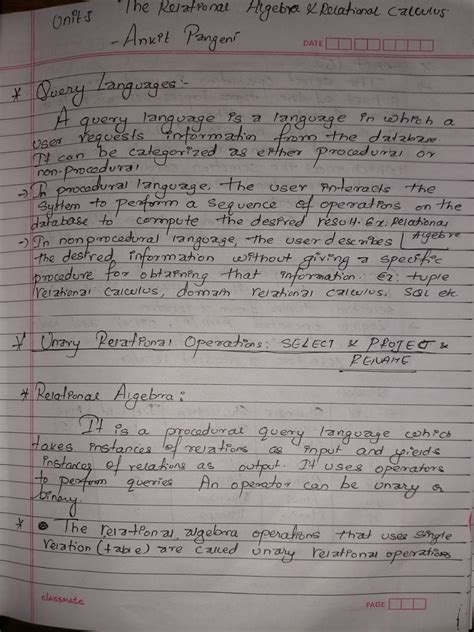 Unit 5 The Relational Algebra & Relational Calculus
- Ankit Pangeni
DATE
* Query Languages:-
A query language is a language in which a
user requests information from the database
It can be categorized as either procedural or
non-procedural
-> In procedural language, the user interacts the
system to perform a sequence of operations on the
database to compute the desired result. Ex: Relational
Algebra
-> In nonprocedural language, the user describes
the desired information without giving a specific
procedure for obtaining that information. ex: tuple
relational calculus, domain relational calculus, SQL etc
* Unary Relational Operations: SELECT & PROJECT &
RENAME
* Relational Algebra:
It is a procedural query language which
takes instances of relations as input and yields
instances of relations as output. It uses operators
to perform queries An operator can be unary or
binary.
* The relational algebra operations that uses single
relation (table) are called unary relational operations
classmate
PAGE